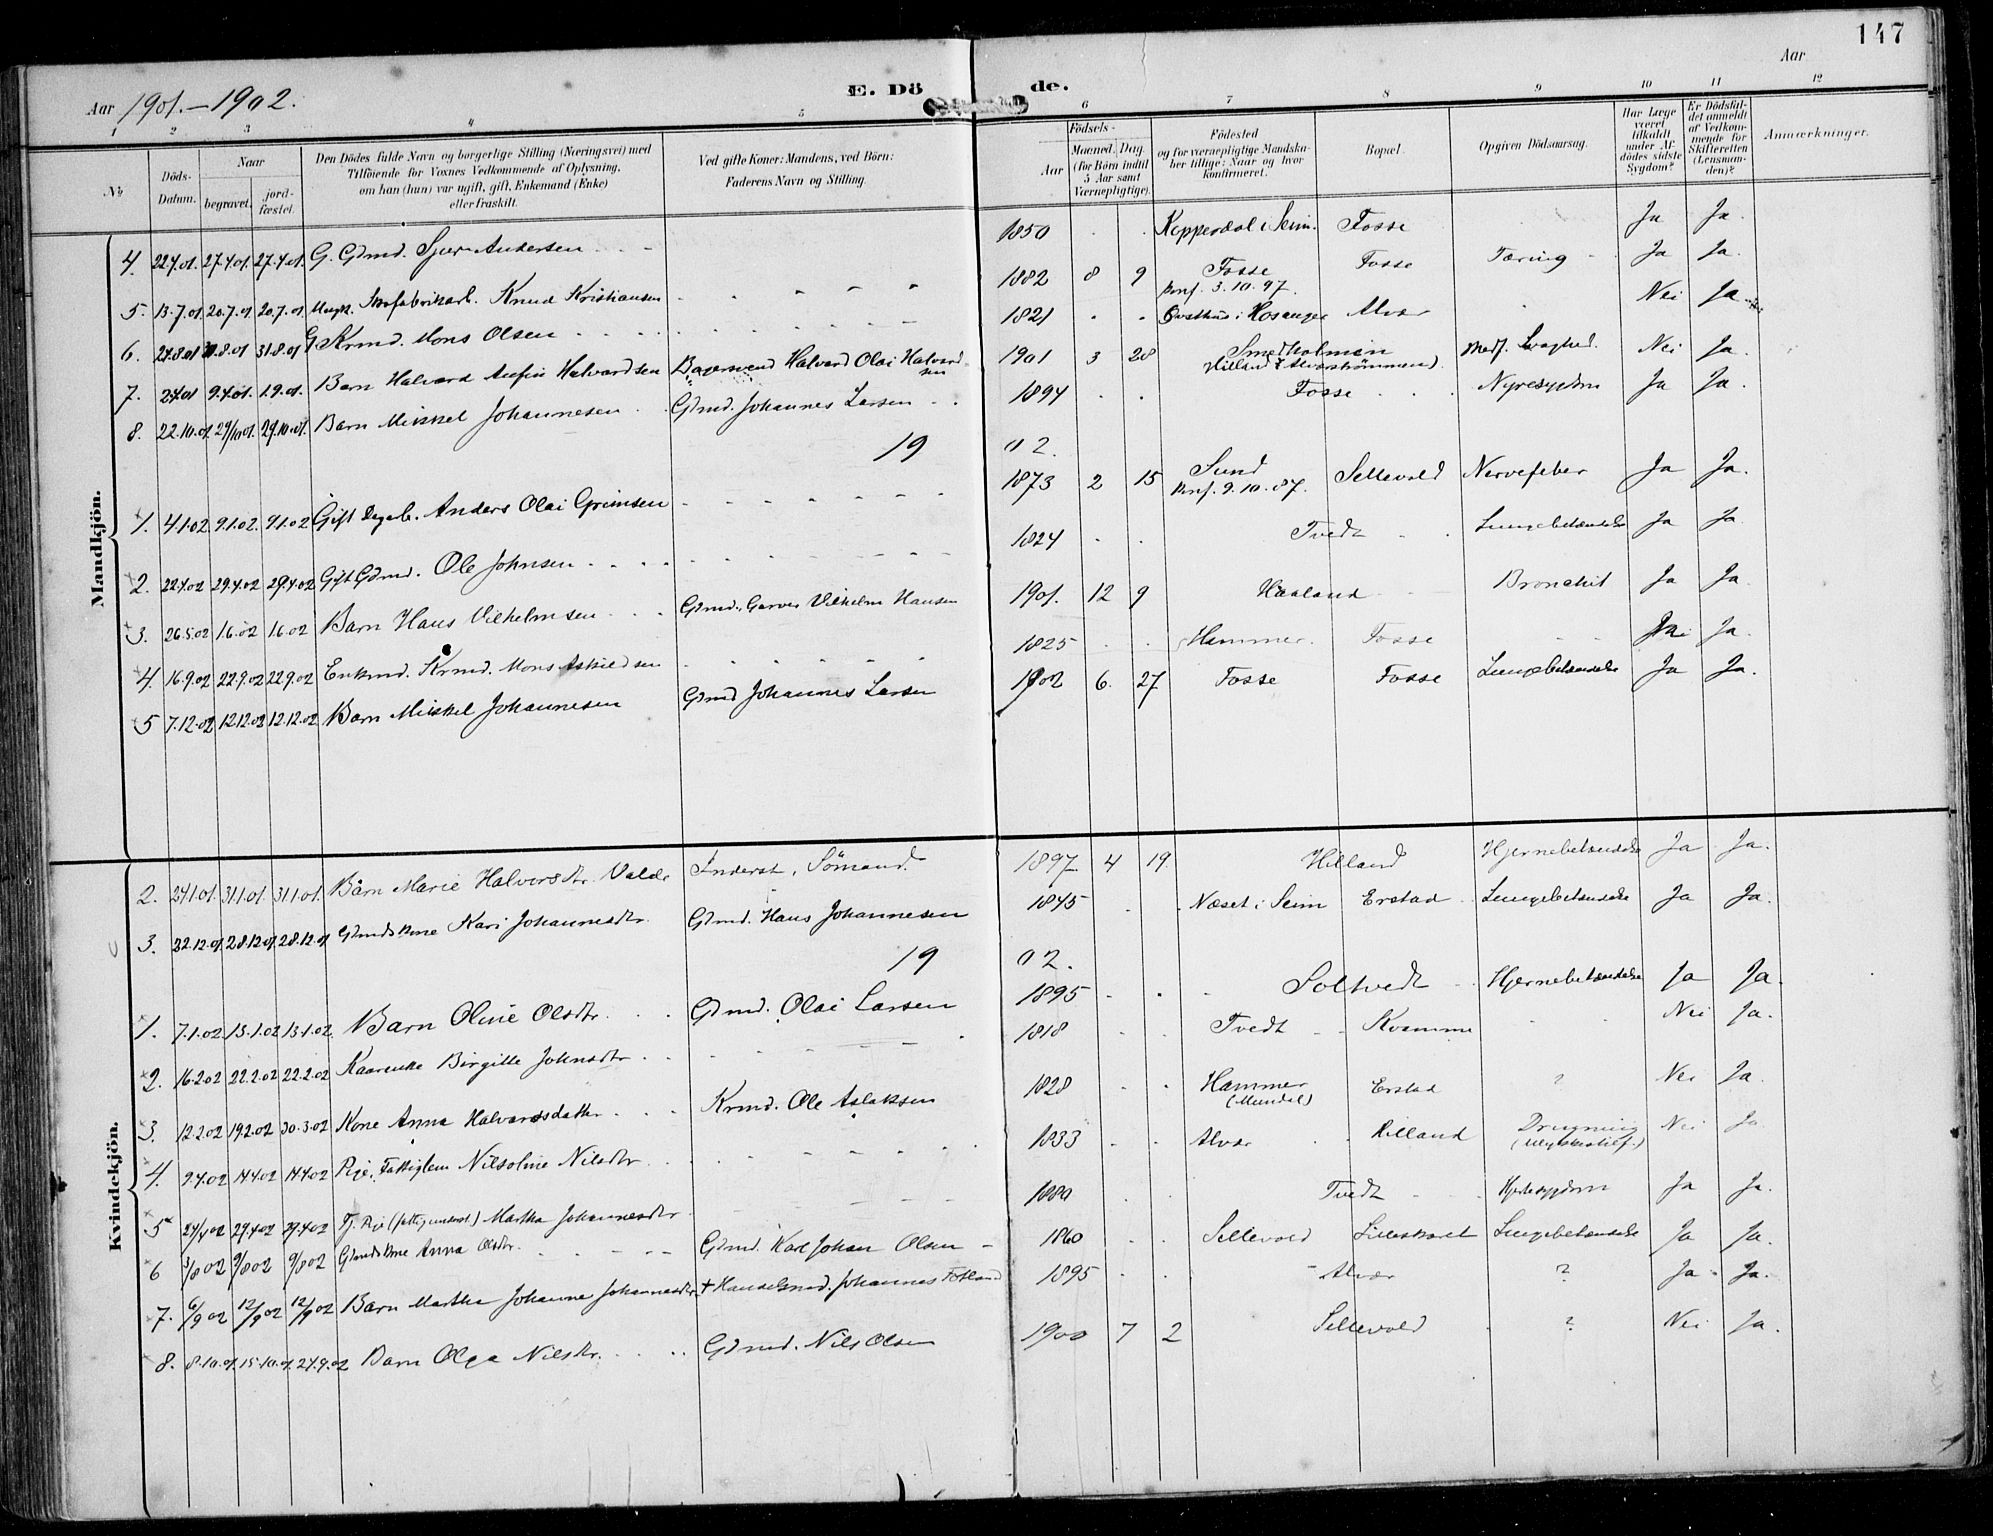 147
Aar 1901.-1902.
E. Dö de.
Aar
1 2 3 4 5 6 7 8 9 10 11 12
No
Döds-Datum.
Naar
begravet.
jord-fæstet.
Den Dödes fulde Navn og borgerlige Stilling (Næringsvei) med
Tilföiende for Voxnes Vedkommende af Oplysning,
om han (hun) var ugift, gift, Enkemand (Enke)
eller fraskilt.
Ved gifte Koner: Mandens, ved Börn:
Faderens Navn og Stilling.
Födsels-
Aar
Maaned. Dag.
(for Börn indtil
5 Aar samt
Værnepligtige).
Födested
og for værnepligtige Mandska-
ber tillige: Naar og hvor
konfirmeret.
Bopæl.
Opgiven Dödsaarsag.
Har Læge
været
tilkaldt
under Af-
dödes sidste
Sygdom?
Er Dödsfal-
det anmeldt
af Vedkom-
mende for
Skifteretten
(Lensman-
den)?
Anmærkninger.
Mandkjön.
4. 22.4.01. 27.4.01. 27.4.01. G. Gdmd. Sjur Andersen 1850 Kopperdal i Seim. Fosse Ja Ja.
5. 13.7.01 20.7.01 20.7.01 Knud Kristiansen 1882 8 9 Fosse Konf. 3.10.97. Fosse Tæring Ja Ja.
6. 31.8.01 G Krmd. Mons Olsen 1821 i Hosanger Alver Nei Ja
7. 9.4.01. 1.9.01. Barn Halvard Anfin Halvardsen Halvard Olai Halvardsen 1901 3 28 Smedholmen Medf. Svaghed. Nei Ja.
8. 22.10.01. 29/10 01 29.10.01. Barn Mikkel Johannesen Gdmd. Johannes Larsen 1894 Fosse Nyresygdom Ja Ja.
19 02.
1. 4.1.02 9.1.02. 9.1.02 Gift Anders Olai Grimsen 1873 2 15 Sund Konf. 9.10.87. Sellevold Nervefeber Ja Ja.
2. 22.4.02 29.4.02 29.4.02 Gift Gdmd. Ole Johnsen 1824 Tvedt Lungebetændelse Ja Ja.
3. 26.5.02 1.6.02 1.6.02 Barn Hans Vilhelmsen Gdmd., Garver Vilhelm Hansen 1901. 12 9 Haaland Bronchit Ja Ja.
4. 16.9.02 22.9.02 22.9.02 Enkmd. Krmd. Mons Askildsen 1825 Hammer. Fosse Nei Ja.
5 7.12.02 12.12.02 12.12.02 Barn Mikkel Johannesen Gdmd Johannes Larsen 1902 6. 27 Fosse Fosse Lungebetændelse Ja Ja.
Kvindekjön.
2. 24.1.01. 31.1.01. 31.1.01. Barn Marie Halvorsdtr. Valde Inderst, Sömand. 1897 4 19. Hilland Hjernebetændelse Ja Ja.
3. 22.12.01. 28.12.01. 28.12.01 Gdmdskone Kari Johannesdtr. Gdmd. Hans Johannesen 1845 Næset i Seim Erstad Lungebetændelse Ja Ja.
19 02.
1. 7.1.02 13.1.02 13.1.02. Barn Oline Olsdtr. Gdmd. Olai Larsen 1895 Soltvedt Hjernebetændelse Ja Ja.
2. 16.2.02 22.2.02 22.2.02 Birgitte Johnsdtr 1818 Tvedt Kvamme Nei Ja.
3. 12.2.02 19.2.02 30.3.02 Kone Anna Halvardsdatter Krmd. Ole Aslaksen 1828 Hammer (Mundal) Erstad ? Nei Ja.
4. 9.4.02 14.4.02 14.4.02 Pige, Fattiglem Nilsoline Nilsdtr. 1833 Alver Hilland Drugning Nei Ja
5 24/4 02 29.4.02 29.4.02 Tj. Pige Martha Johannesdtr 1880 Tvedt Ja Ja.
6 3/8 02 9/8 02 9/8 02 Gdmdskone Anna Olsdtr. Gdmd. Karl Johan Olsen 1860 Sellevold Lilleskaret Lungebetændelse Ja Ja.
7. 6/9 02 12/9 02 12/9 02 Barn Martha Johanne Johannesdtr + Handelsmd. Johannes Fosland 1895 Alver ? Ja. Ja.
8. 8.10.01. 15.10.01. 27.9.02 Barn Olga Nilsdtr. Gdmd. Nils Olsen 1900 7 2 Sellevold ? Nei Ja.